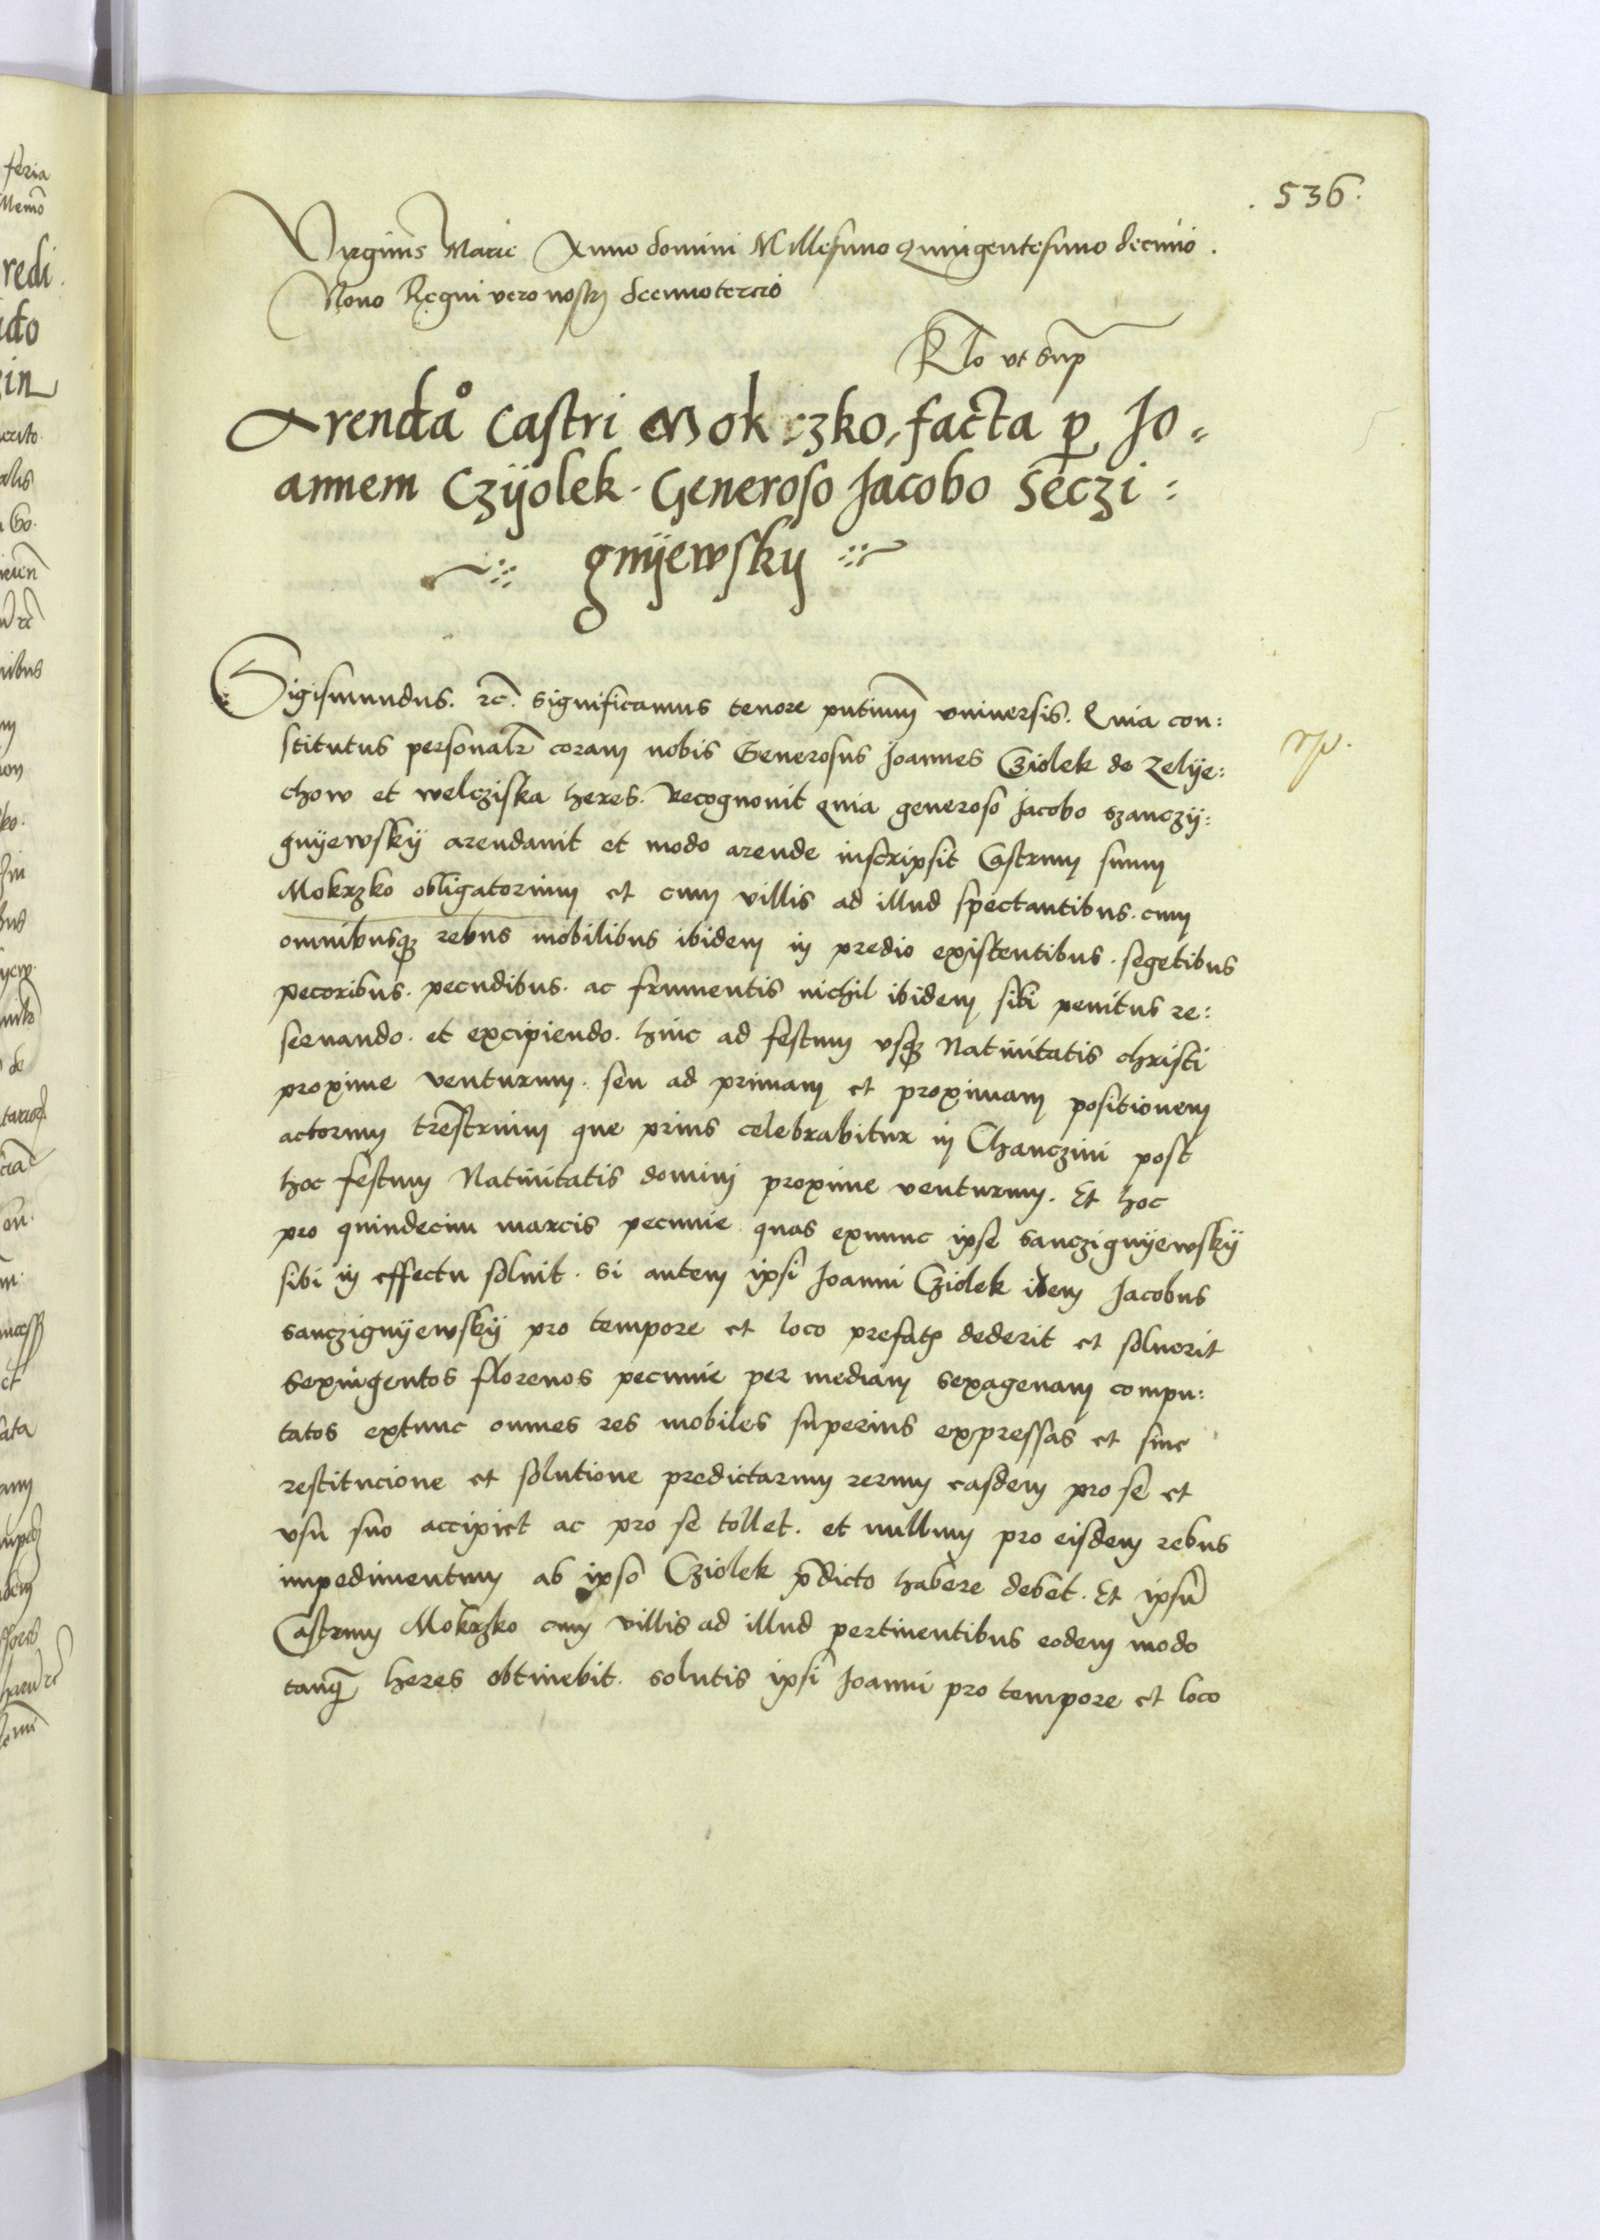 . 536 .
Virginis Marie Anno domini Millesimo Quingentesimo decimo .
Nono Regni vero nostrj decimotercio
Rlo vt sup
Arenda Castri Mokrzko, facta p Jo=
annem Czÿolek . Generoso Jacobo Seczi=
gnÿewskÿ
Sigismundus . rc̃. Significamus tenore pñtium vniuersis . Quia con:
stitutus personalr̃ coram nobis Generosus Joannes Cziolek de Zelÿe:
chow et welcziska heres . Recognouit quia generoso Jacobo Szanczÿ:
gnÿewskÿ arendauit et modo arende inscripsit Castrum suum
Mokrzko obligatorium et cum villis ad illud spectantibus . cum
omnibusqз rebus mobilibus ibidem in predio existentibus . segetibus
pecoribus . pecudibus . ac frumentis nichil ibidem sibi penitus re:
seruando . et excipiendo . hinc ad festum vsqз Natiuitatis christi
proxime venturum . seu ad primam et proximam positionem
actorum tr̃estrium que prius celebrabitur in Chanczini post
hoc festum Natiuitatis domini proxime venturum . Et hoc
pro quindecim marcis pecunie quas exnunc ipse Sanczignÿewskÿ
sibi in effectu soluit . Si autem ipsi Joanni Cziolek idem Jacobus
Sanczignÿewskÿ pro tempore et loco prefatis dederit et soluerit
Sexingentos florenos pecunie per mediam sexagenam compu:
tatos extunc omnes res mobiles superius expressas et sine
restitucione et solutione predictarum rerum easdem pro se et
vsu suo accipiet ac pro se tollet . et nullum pro eisdem rebus
impedimentum ab ipso Cziolek p̃dicto habere debet . Et ipsũ
Castrum Mokrzko cum villis ad illud pertinentibus eodem modo
tanqз heres obtinebit . solutis ipsi Joanni pro tempore et loco